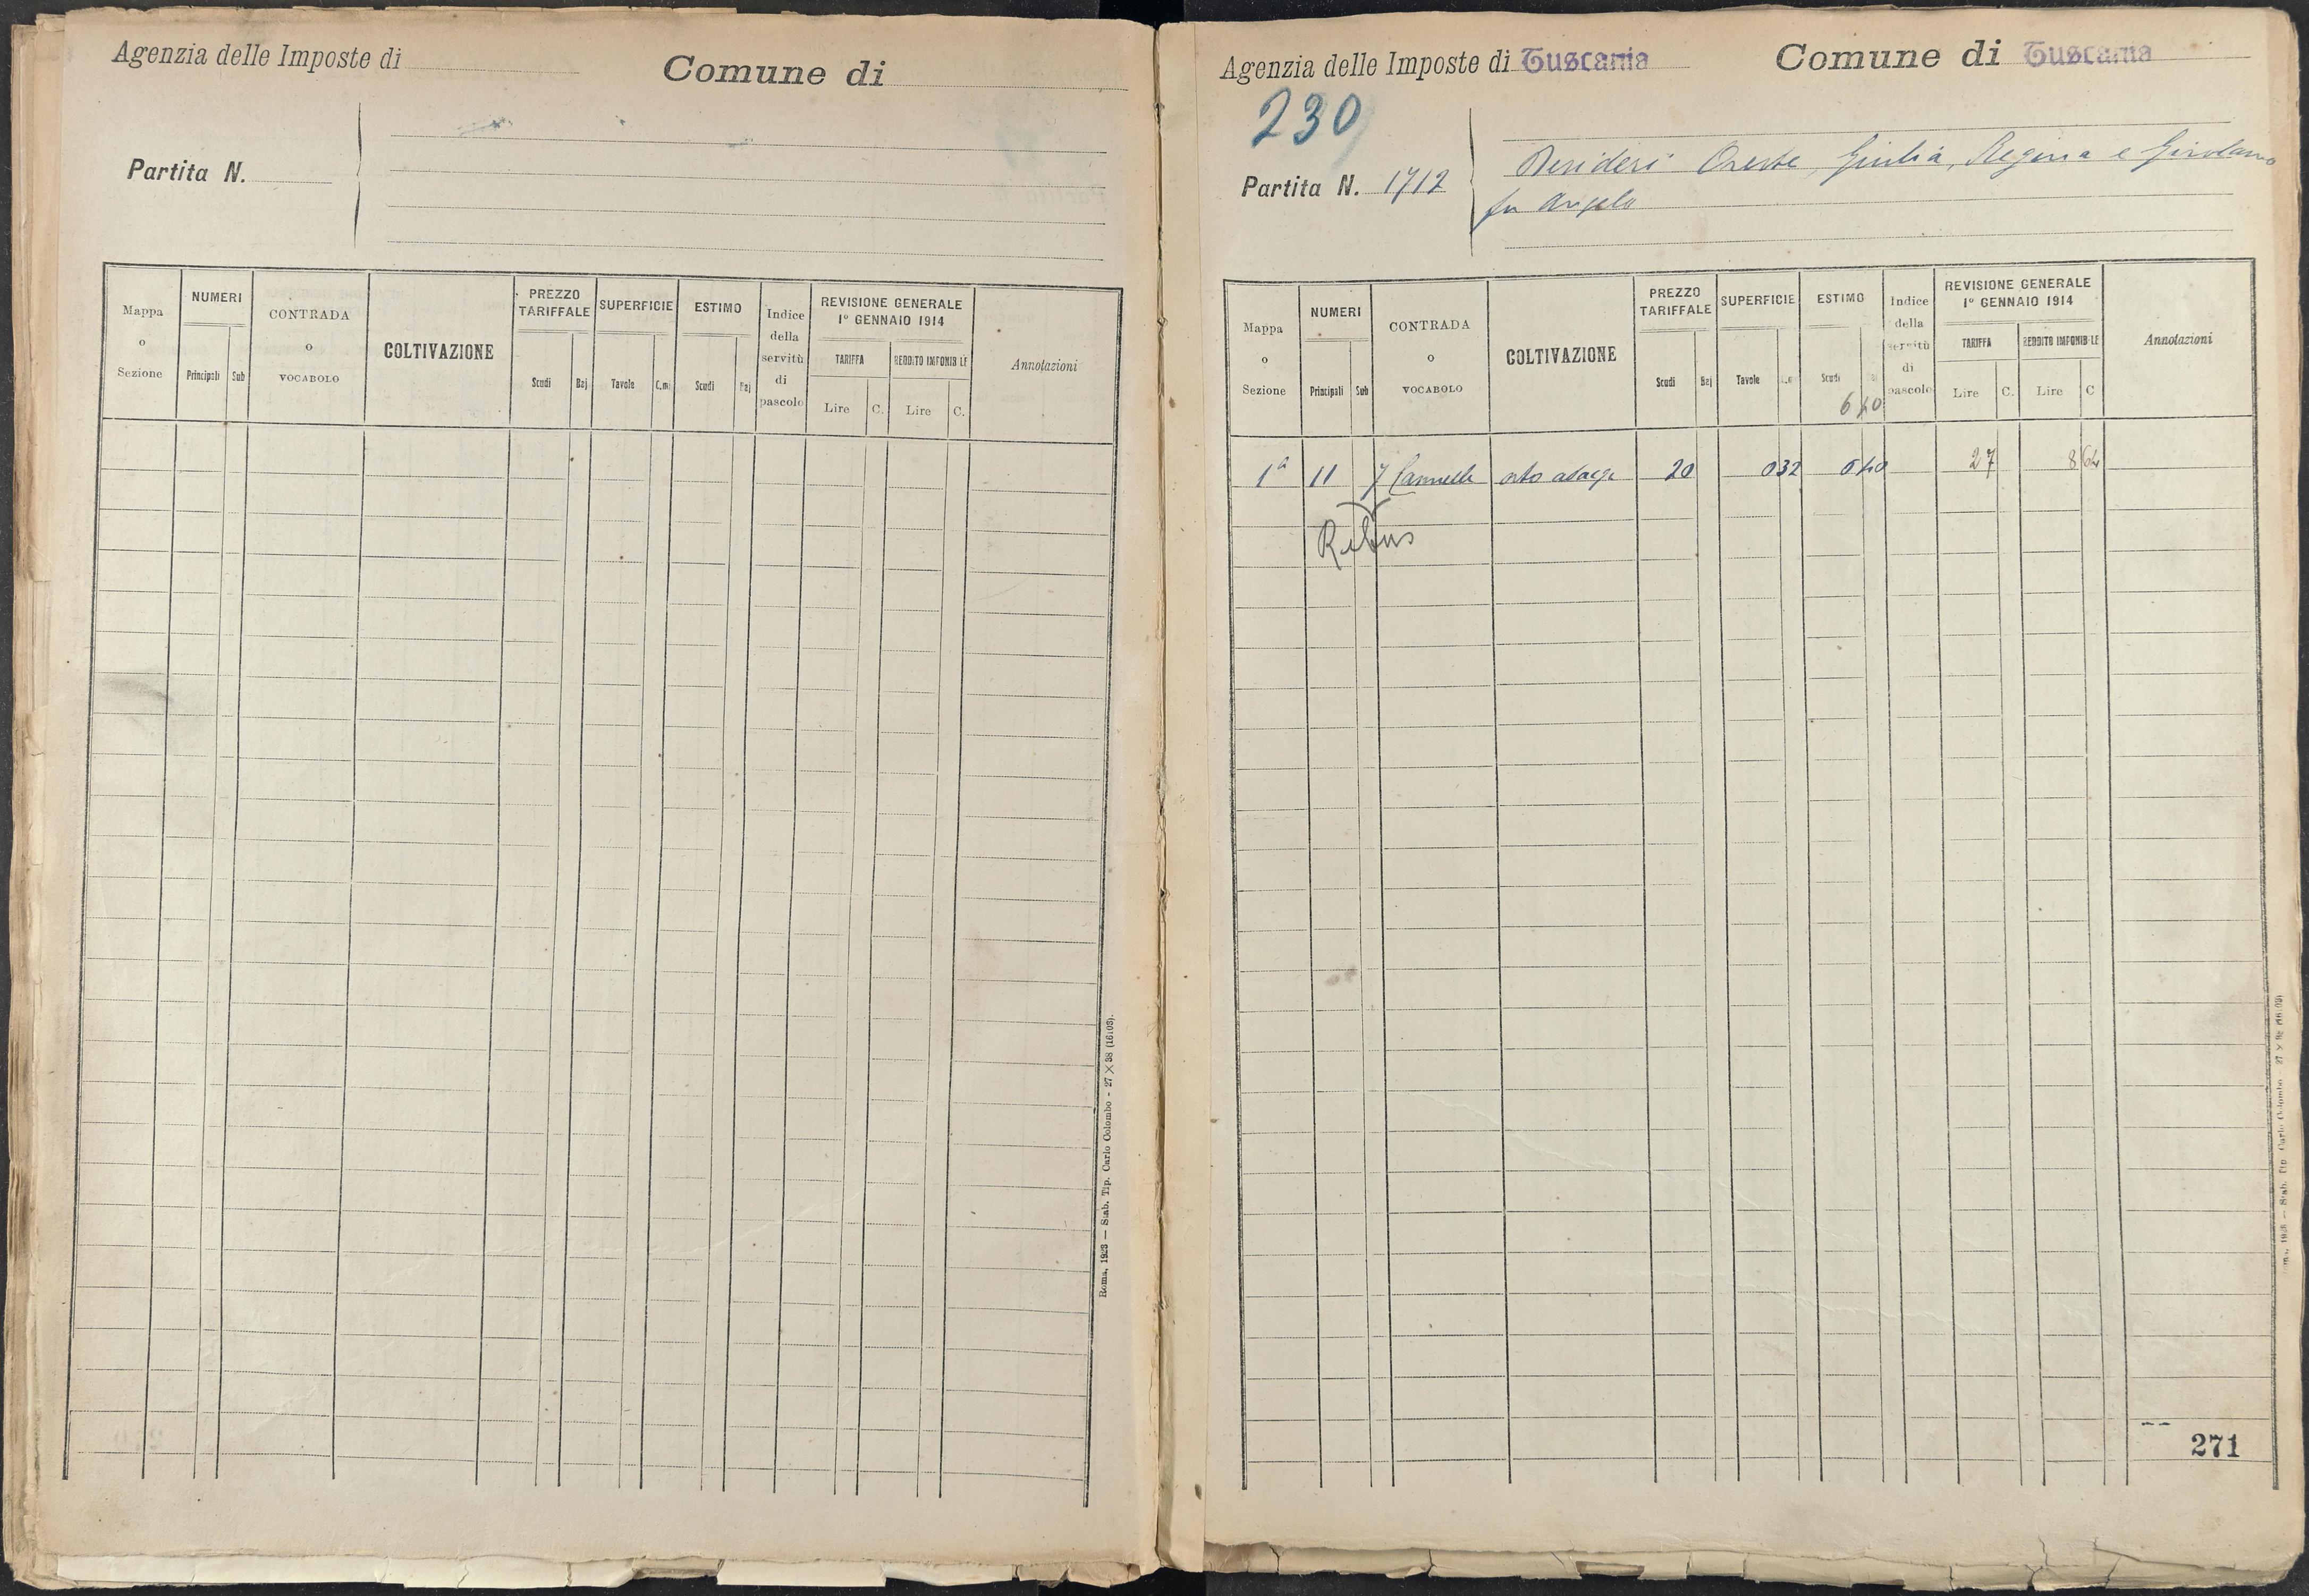 Agenzia delle Imposte di
Comune di
Partita N.
Mappa o Sezione
NUMERI
Principali Sub
CONTRADA o VOCABOLO
COLTIVAZIONE
PREZZO TARIFFALE
Scudi Baj
SUPERFICIE
Tavole C.mi
ESTIMO
Scudi Baj
Indice della servitù di pascolo
REVISIONE GENERALE
1º GENNAIO 1914
TARIFFA
Lire C.
REDDITO IMPONIBILE
Lire C.
Annotazioni
Roma, 1923 — Stab. Tip. Carlo Colombo - 27 × 38 (16103).
Agenzia delle Imposte di Tuscania
Comune di Tuscania
230
Partita N. 1712
Desideri Oreste, Giulia, Regina e Girolamo
fu Angelo
Mappa o Sezione
NUMERI
Principali Sub
CONTRADA o VOCABOLO
COLTIVAZIONE
PREZZO TARIFFALE
Scudi Baj
SUPERFICIE
Tavole
ESTIMO
Scudi
6 40
Indice della servitù di pascolo
REVISIONE GENERALE
1º GENNAIO 1914
TARIFFA
Lire C.
REDDITO IMPONIBILE
Lire C
Annotazioni
1ª 11 7 Cannelle orto 20 032 6 40 27 8 64
271